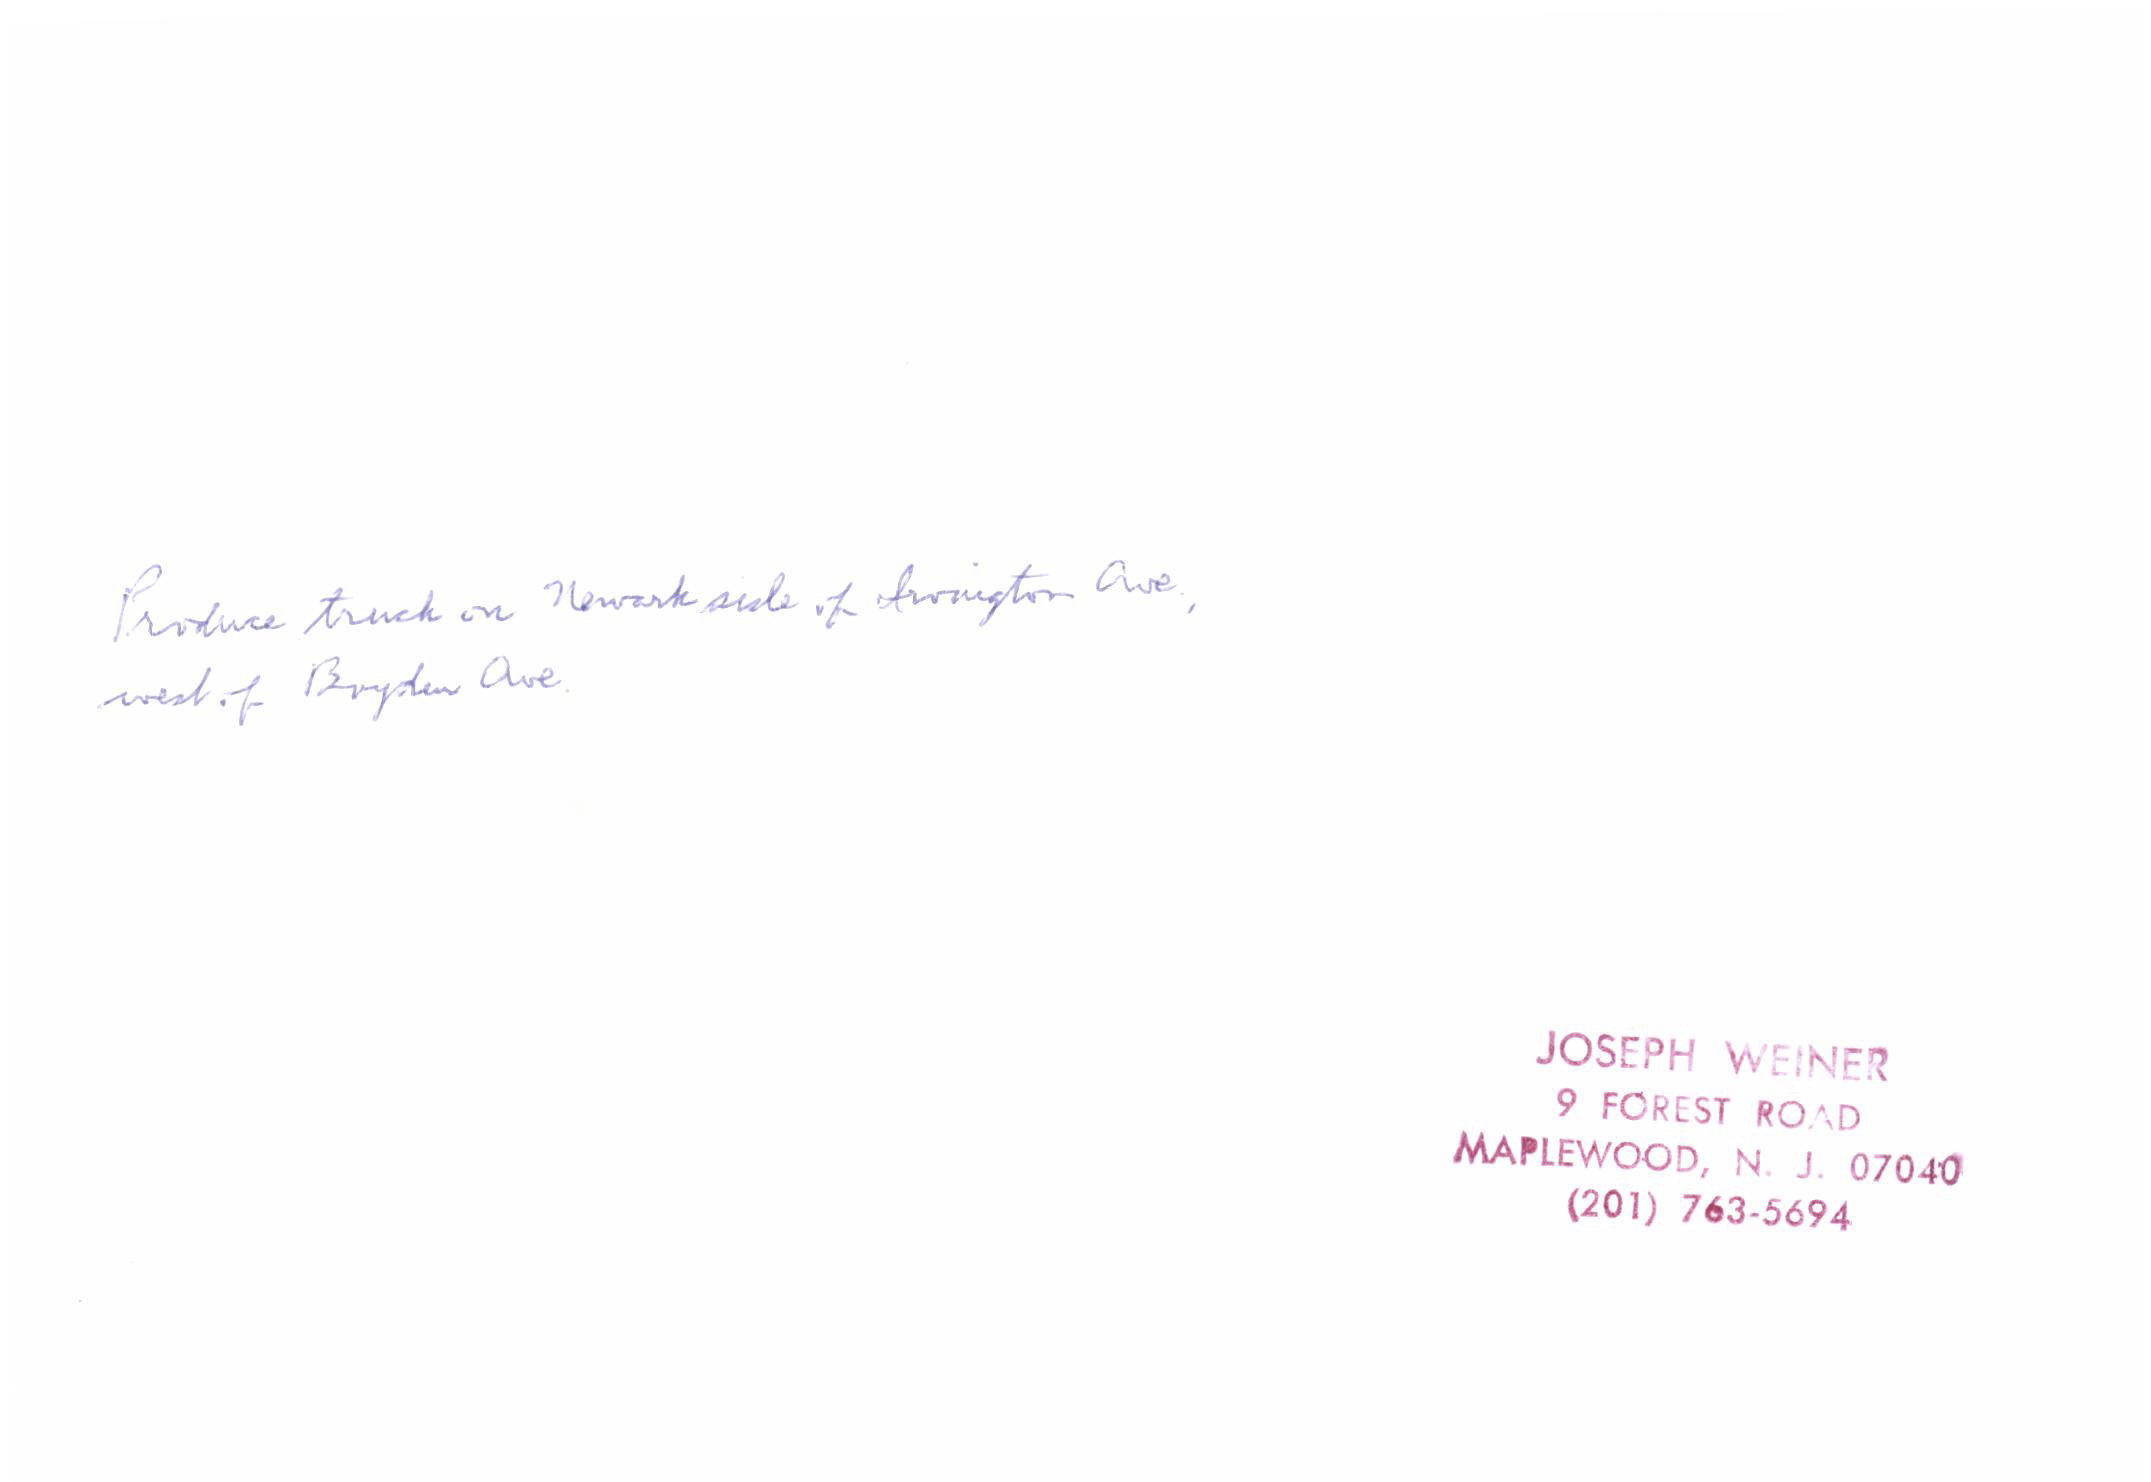 Produce truck on Newark side of Irvington Ave.,
west of Boyden Ave.
JOSEPH WEINER
9 FOREST ROAD
MAPLEWOOD, N. J. 07040
(201) 763-5694